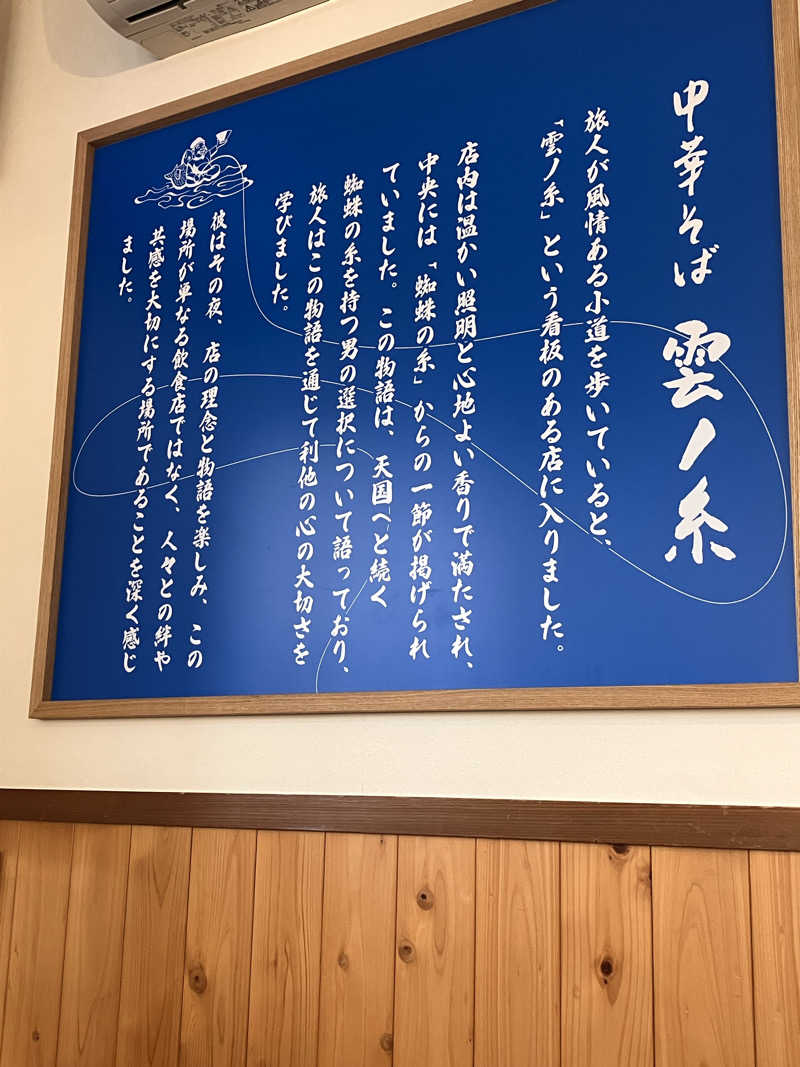 中華そば 雲ノ糸
旅人が風情ある小道を歩いていると、
「雲ノ糸」という看板のある店に入りました。
店内は温かい照明と心地よい香りで満たされ、
中央には「蜘蛛の糸」からの一節が掲げられ
ていました。この物語は、天国へと続く
蜘蛛の糸を持つ男の選択について語っており、
旅人はこの物語を通じて利他の心の大切さを
学びました。
彼はその夜、店の理念と物語を楽しみ、この
場所が単なる飲食店ではなく、人々との絆や
共感を大切にする場所であることを深く感じ
ました。